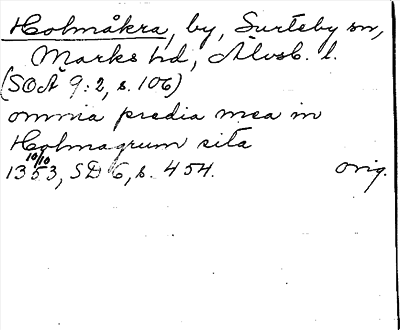 Holmåkra, by, Surteby sn,
Marks hd, Älvsb. l.
(SOÄ 9:2, s. 106)
omnia predia mea in
Holmagrum sita
1353 10/10, SD 6, s. 454. orig.